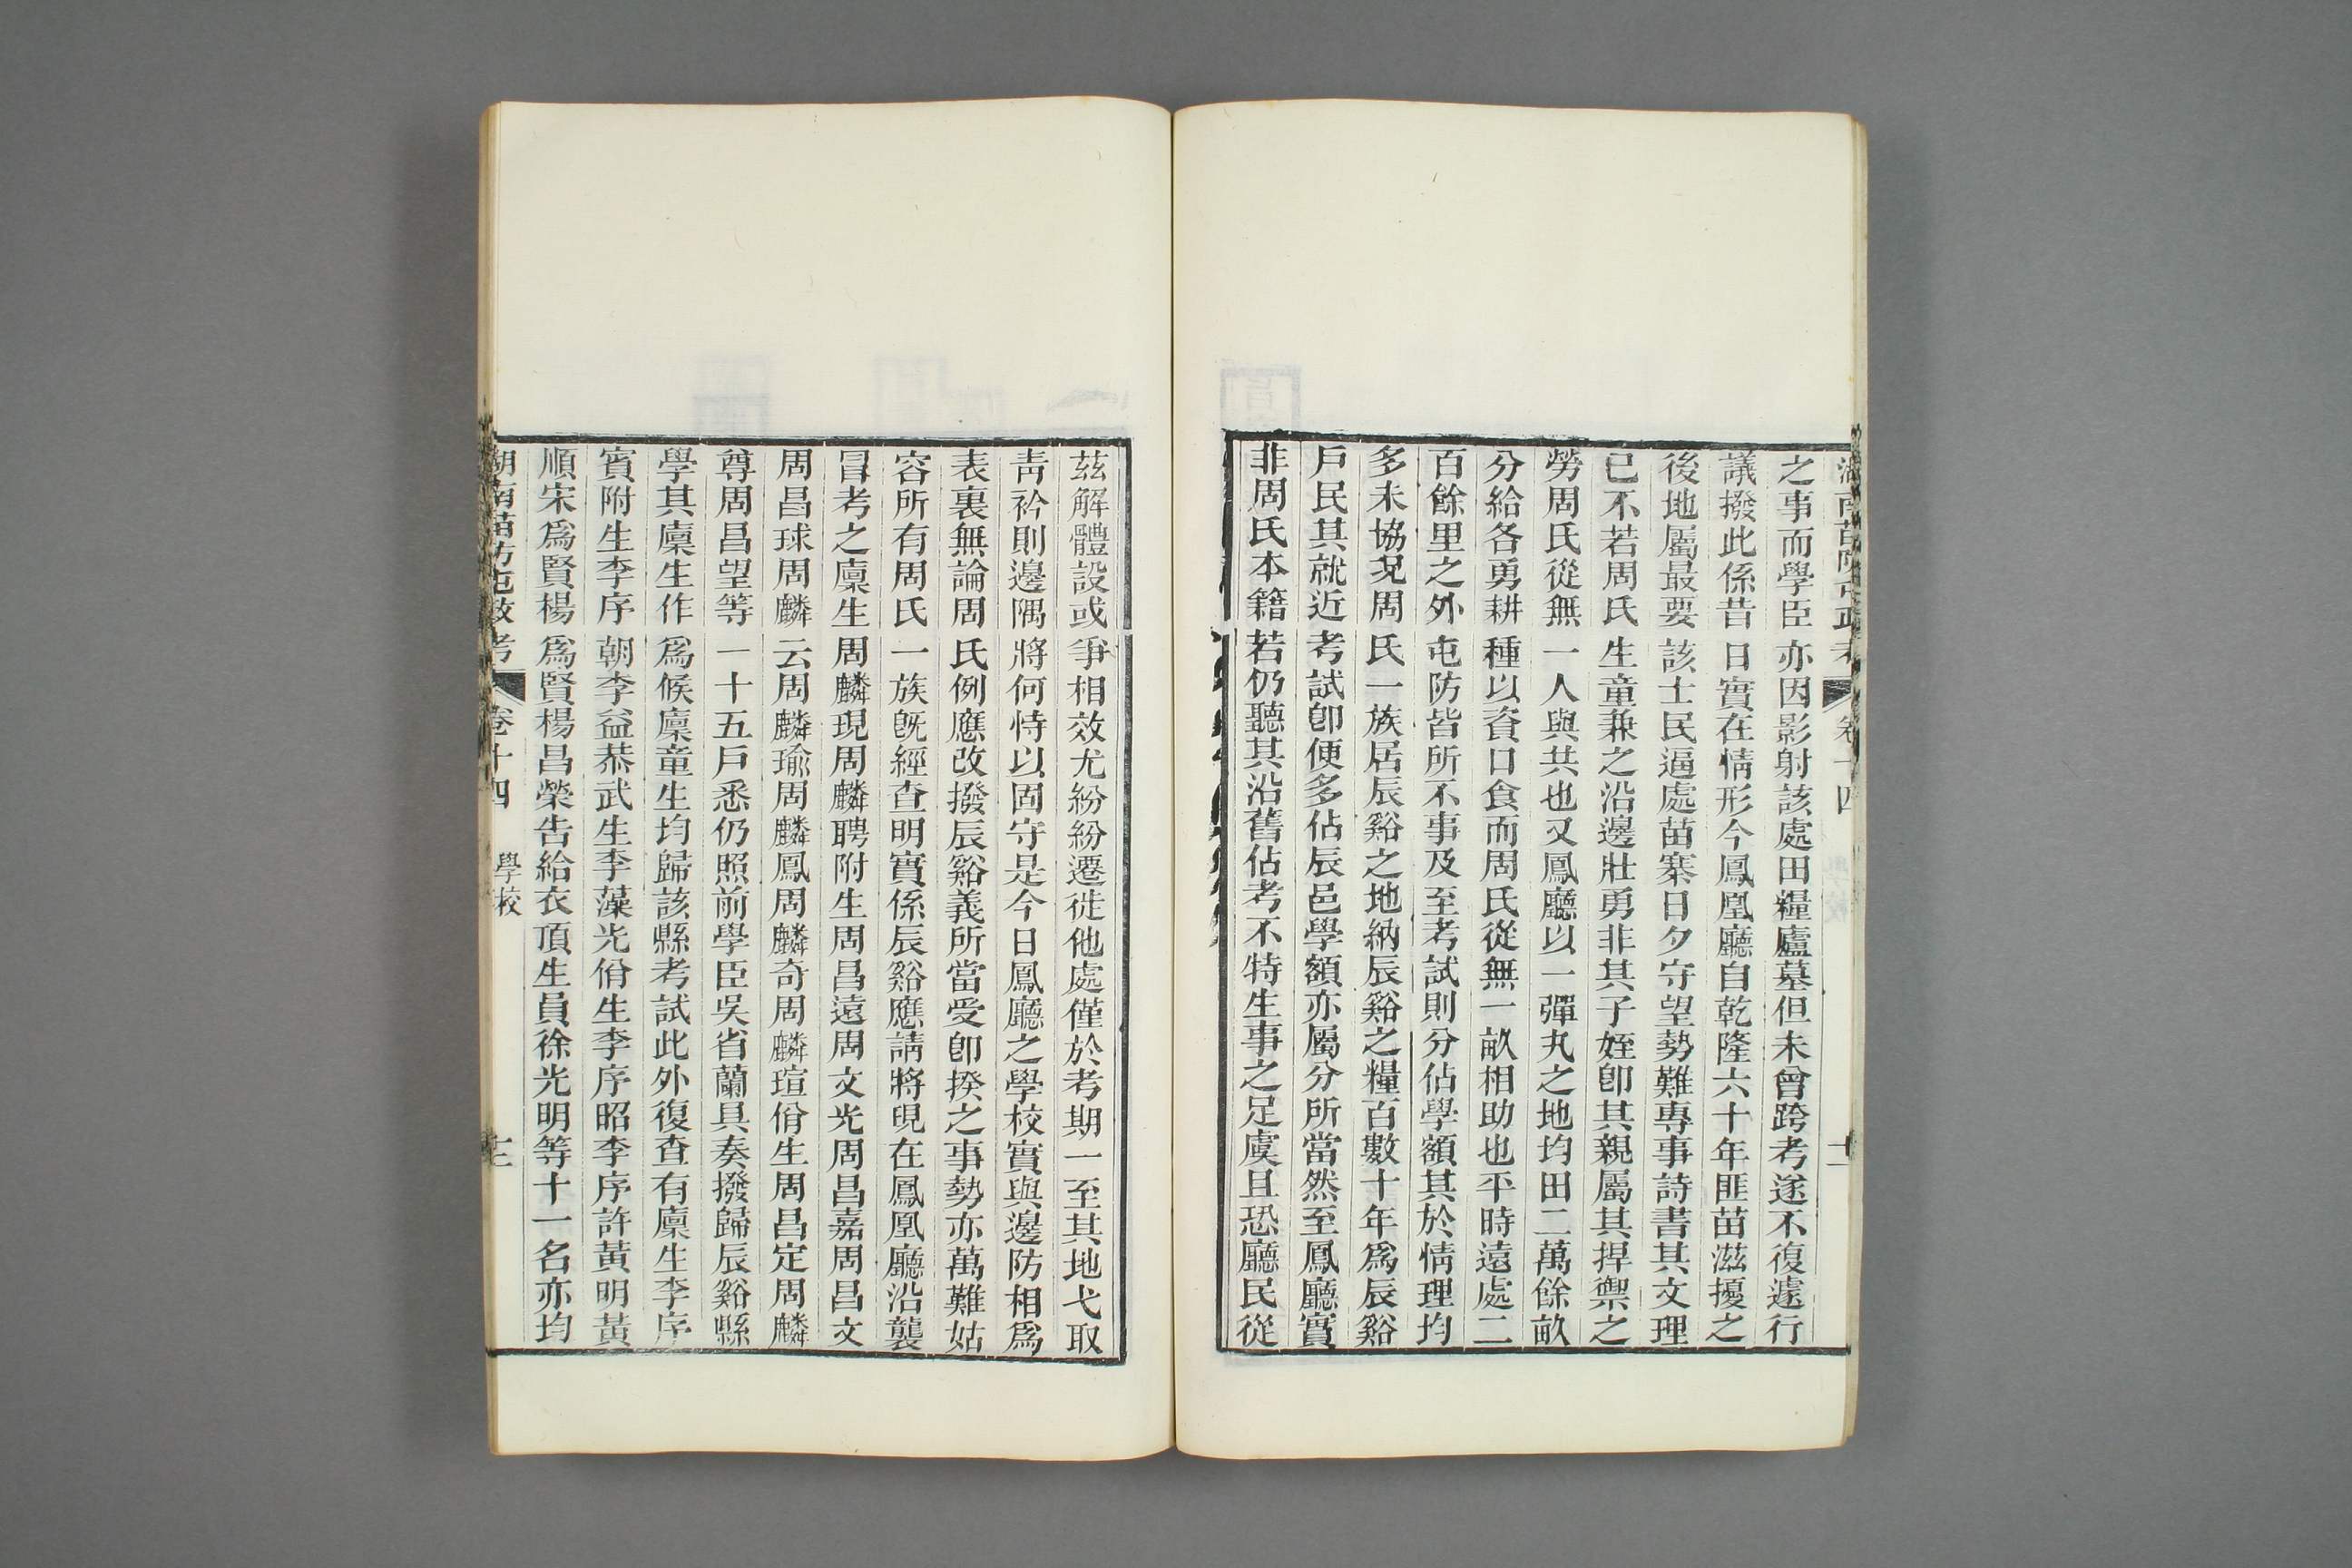 湖南苗防屯政考 卷十四 十二
之事而學臣亦因影射該處田糧廬墓但未曾跨考遂不復遽行
議撥此係昔日實在情形今鳳凰廳自乾隆六十年匪苗滋擾之
後地屬最要該士民逼處苗寨日夕守望勢難專事詩書其文理
已不若周氏生童兼之沿邊壯勇非其子姪卽其親屬其捍禦之
勞周氏從無一人與共也又鳳廳以一彈丸之地均田二萬餘畝
分給各勇耕種以資口食而周氏從無一畝相助也平時遠處二
百餘里之外屯防皆所不事及至考試則分佔學額其於情理均
多未協況周氏一族居辰谿之地納辰谿之糧百數十年爲辰谿
戶民其就近考試卽使多佔辰邑學額亦屬分所當然至鳳廳實
非周氏本籍若仍聽其沿舊佔考不特生事之足虞且恐廳民從
茲解體設或爭相效尤紛紛遷徙他處僅於考期一至其地弋取
靑衿則邊隅將何恃以固守是今日鳳廳之學校實與邊防相爲
表裏無論周氏例應改撥辰谿義所當受卽揆之事勢亦萬難姑
容所有周氏一族旣經查明實係辰谿應請將現在鳳凰廳沿襲
冒考之廩生周麟現周麟聘附生周昌遠周文光周昌嘉周昌文
周昌球周麟云周麟瑜周麟鳳周麟奇周麟瑄佾生周昌定周麟
尊周昌望等一十五戶悉仍照前學臣吳省蘭具奏撥歸辰谿縣
學其廩生作爲候廩童生均歸該縣考試此外復查有廩生李序
賓附生李序朝李益恭武生李藻光佾生李序昭李序許黃明黃
順宋爲賢楊爲賢楊昌榮告給衣頂生員徐光明等十一名亦均
湖南苗防屯政考 卷十四 學校 十三